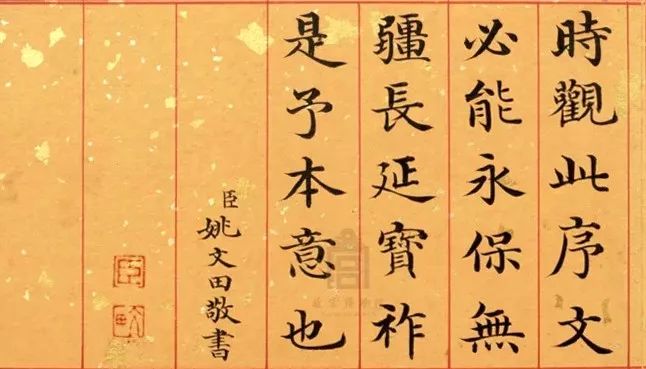 時觀此序文
必能永保無
疆長延寶祚
是予本意也
臣姚文田敬書
臣